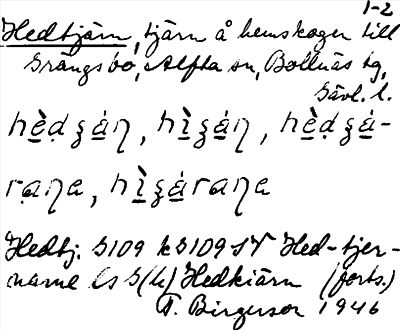 1-2
Hedtjärn, tjärn å hemskogen till
Grängsbo, Alfta sn, Bollnäs tg,
Gävl. l.
hèdʒán, hìʒán, hèdʒá-
rana, hìʒárana
Hedtj. 5109 k5109 SV Hed-tjer-
narne Ls 5(h) Hedkiärn (forts.)
T. Birgerson 1946